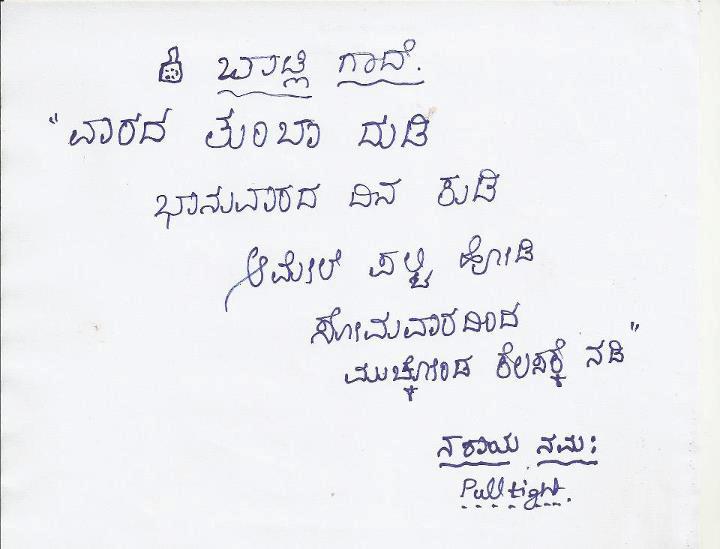 ಬಾಟ್ಲಿ ಗಾದೆ.
"ವಾರದ ತುಂಬಾ ದುಡಿ
ಭಾನುವಾರದ ದಿನ ಕುಡಿ
ಆಮೇಲೆ ಪಲ್ಟಿ ಹೋಡಿ
ಸೋಮವಾರದಿಂದ
ಮುಚ್ಕೋಂಡ ಕೆಲಸಕ್ಕೆ ನಡಿ"
ನಶಾಯ ನಮಃ
Pull tight.